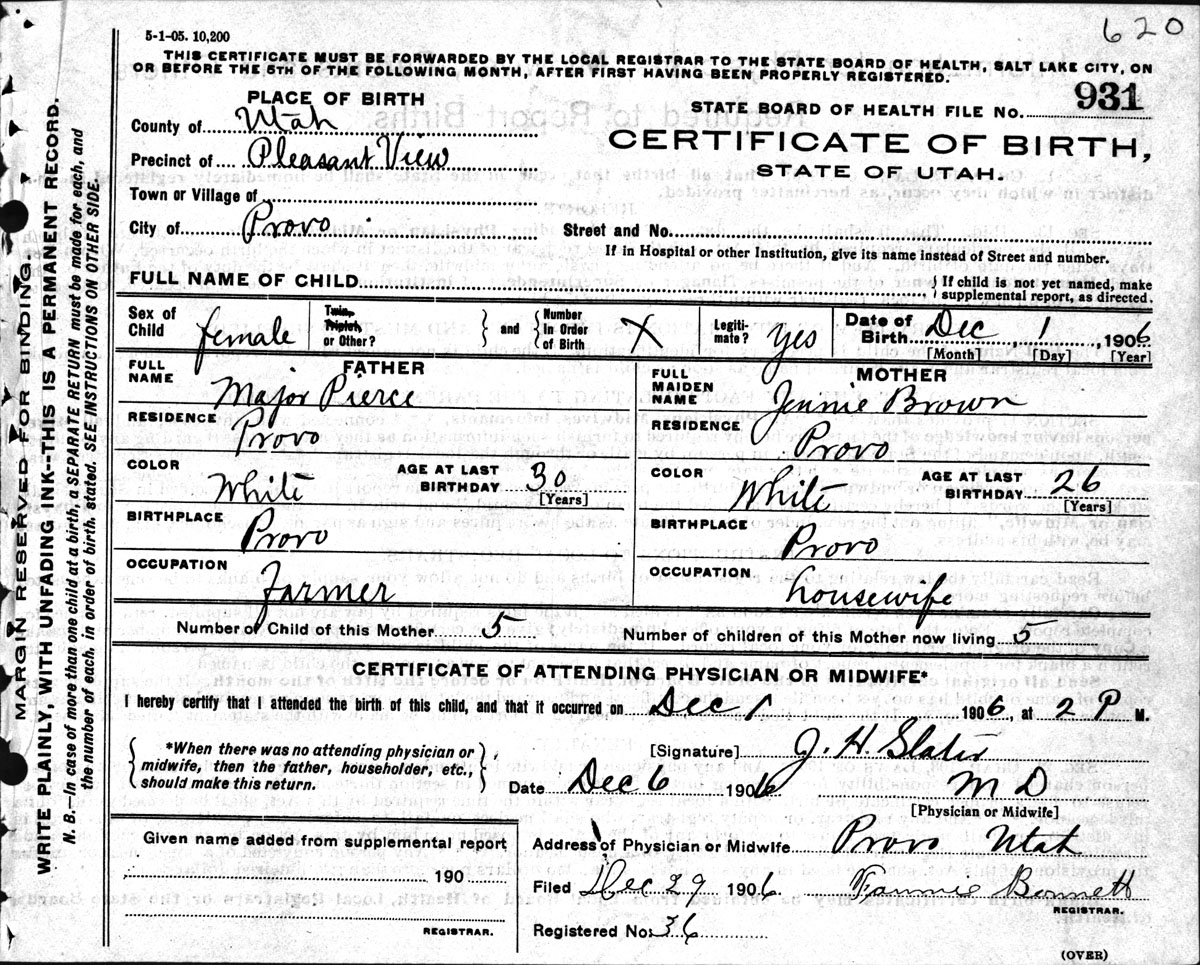 620
5-1-05. 10,200
THIS CERTIFICATE MUST BE FORWARDED BY THE LOCAL REGISTRAR TO THE STATE BOARD OF HEALTH, SALT LAKE CITY, ON
OR BEFORE THE 5TH OF THE FOLLOWING MONTH, AFTER FIRST HAVING BEEN PROPERLY REGISTERED.
PLACE OF BIRTH
County of Utah
Precinct of Pleasant View
Town or Village of
City of Provo
STATE BOARD OF HEALTH FILE NO. 931
CERTIFICATE OF BIRTH,
STATE OF UTAH.
Street and No.
If in Hospital or other Institution, give its name instead of Street and number.
FULL NAME OF CHILD
If child is not yet named, make
supplemental report, as directed.
Sex of Child female
Twin, Triplet, or Other? and Number In Order of Birth X
Legitimate? Yes
Date of Birth Dec 1 1906
[Month] [Day] [Year]
FATHER
FULL NAME Major Pierce
RESIDENCE Provo
COLOR White AGE AT LAST BIRTHDAY 30
[Years]
BIRTHPLACE Provo
OCCUPATION Farmer
MOTHER
FULL MAIDEN NAME Jennie Brown
RESIDENCE Provo
COLOR White AGE AT LAST BIRTHDAY 26
[Years]
BIRTHPLACE Provo
OCCUPATION housewife
Number of Child of this Mother 5 Number of children of this Mother now living 5
CERTIFICATE OF ATTENDING PHYSICIAN OR MIDWIFE*
I hereby certify that I attended the birth of this child, and that it occurred on Dec 1 1906, at 2 P M.
*When there was no attending physician or
midwife, then the father, householder, etc.,
should make this return.
[Signature] J. H. Slater
Date Dec 6 1906 M D
[Physician or Midwife]
Given name added from supplemental report
190
REGISTRAR.
Address of Physician or Midwife Provo Utah
Filed Dec 29 1906 Fannie Bennett
REGISTRAR.
Registered No. 36
(OVER)
MARGIN RESERVED FOR BINDING
WRITE PLAINLY, WITH UNFADING INK—THIS IS A PERMANENT RECORD.
N. B.—In case of more than one child at a birth, a SEPARATE RETURN must be made for each, and
the number of each, in order of birth, stated. SEE INSTRUCTIONS ON OTHER SIDE.